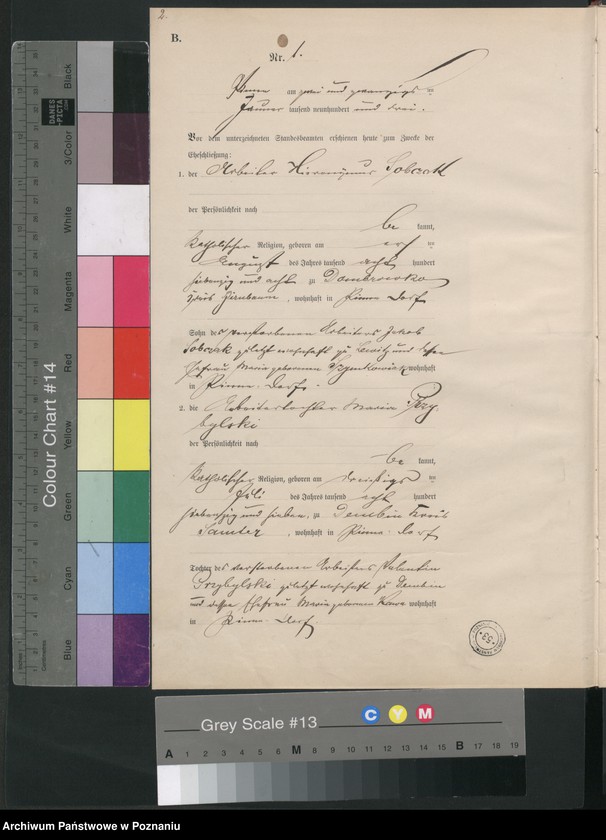 2.
B.
Nr. 1.
Pinne am zwei und zwanzigsten
Januar tausend neunhundert und drei.
Vor dem unterzeichneten Standesbeamten erschienen heute zum Zwecke der
Eheschließung:
1. der Arbeiter Hieronymus Sobczak
der Persönlichkeit nach
be kannt,
katholischer Religion, geboren am
August des Jahres tausend acht hundert
siebenzig und acht zu Dombrowko
Kreis Birnbaum, wohnhaft in Pinne Dorf
Sohn des verstorbenen Arbeiters Jakob
Sobczak zuletzt wohnhaft zu und dessen
Ehefrau Maria geborenen wohnhaft
in Pinne-Dorf.
2. die Arbeitertochter Maria Przy-
bylski
der Persönlichkeit nach
be kannt,
katholischer Religion, geboren am dreißigs ten
Juli des Jahres tausend acht hundert
siebenzig und sieben, zu Dembin Kreis
Samter, wohnhaft in Pinne-Dorf
Tochter des verstorbenen Arbeiters Valentin
Przybylski zuletzt wohnhaft zu Dembin
und dessen Ehefrau Maria geborenen wohnhaft
in Pinne-Dorf
Colour Chart #14
Black
3/Color
White
Magenta
Red
Yellow
Green
Cyan
Blue
DANES
-PICTA
.COM
Centimetres
Grey Scale #13
C Y M
A 1 2 3 4 5 6 M 8 9 10 11 12 13 14 15 B 17 18 19
Archiwum Państwowe w Poznaniu